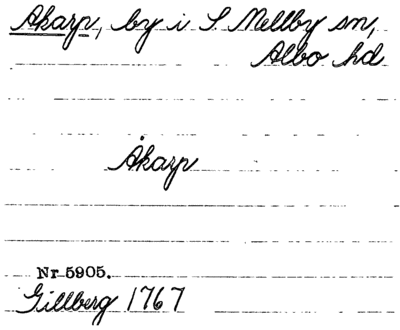 Åkarp, by i S. Mellby sn,
Albo hd
Åkarp
Nr 5905.
Gillberg 1767